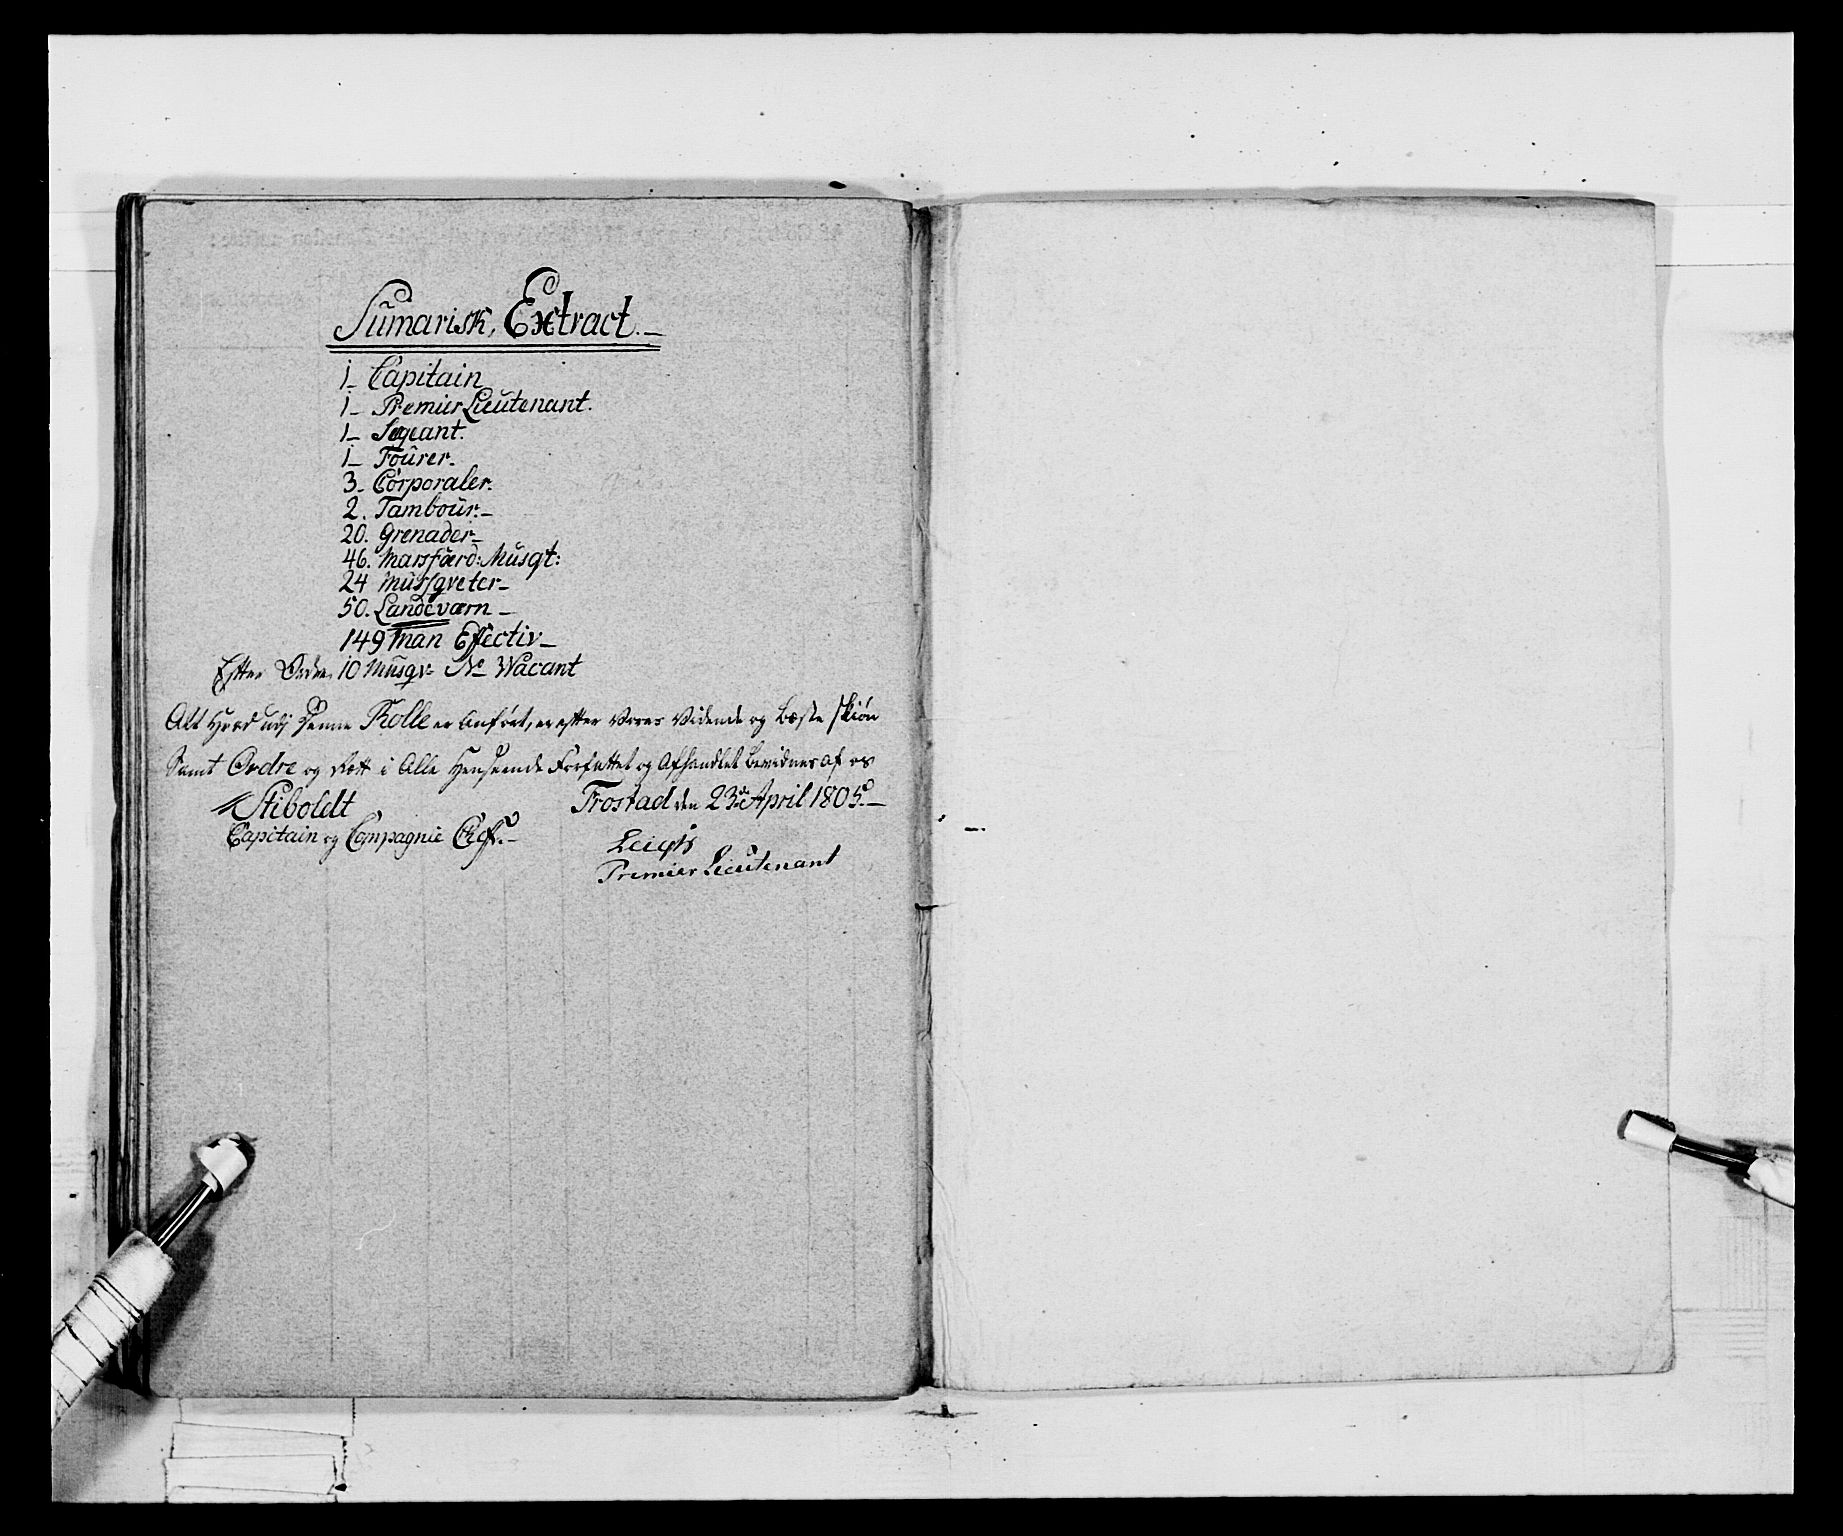 Sumarisk, Extract.
1 Capitain
1 Premier Lieutenant.
1 Segeant.
1 Fourer.
3 Corporaler.
2. Tambour.
20. Grenader
46. Marsfærd: Musqt:
24 Mussqveter
50. Landeværn
149 Man Effectiv
Efter Ordre 10 Musqv: No Wacant
Alt Hvad udj Denne Rolle er Anført, er efter Vores Vidende og Beste skiøn
Samt Ordre og Rett i Alle Henseende Forfattet og Afhandlet Bevidnes af os
Stiboldt
Frostad den 23de April 1805.
Capitain og Compagnie Chef.
Premier Lieutenant